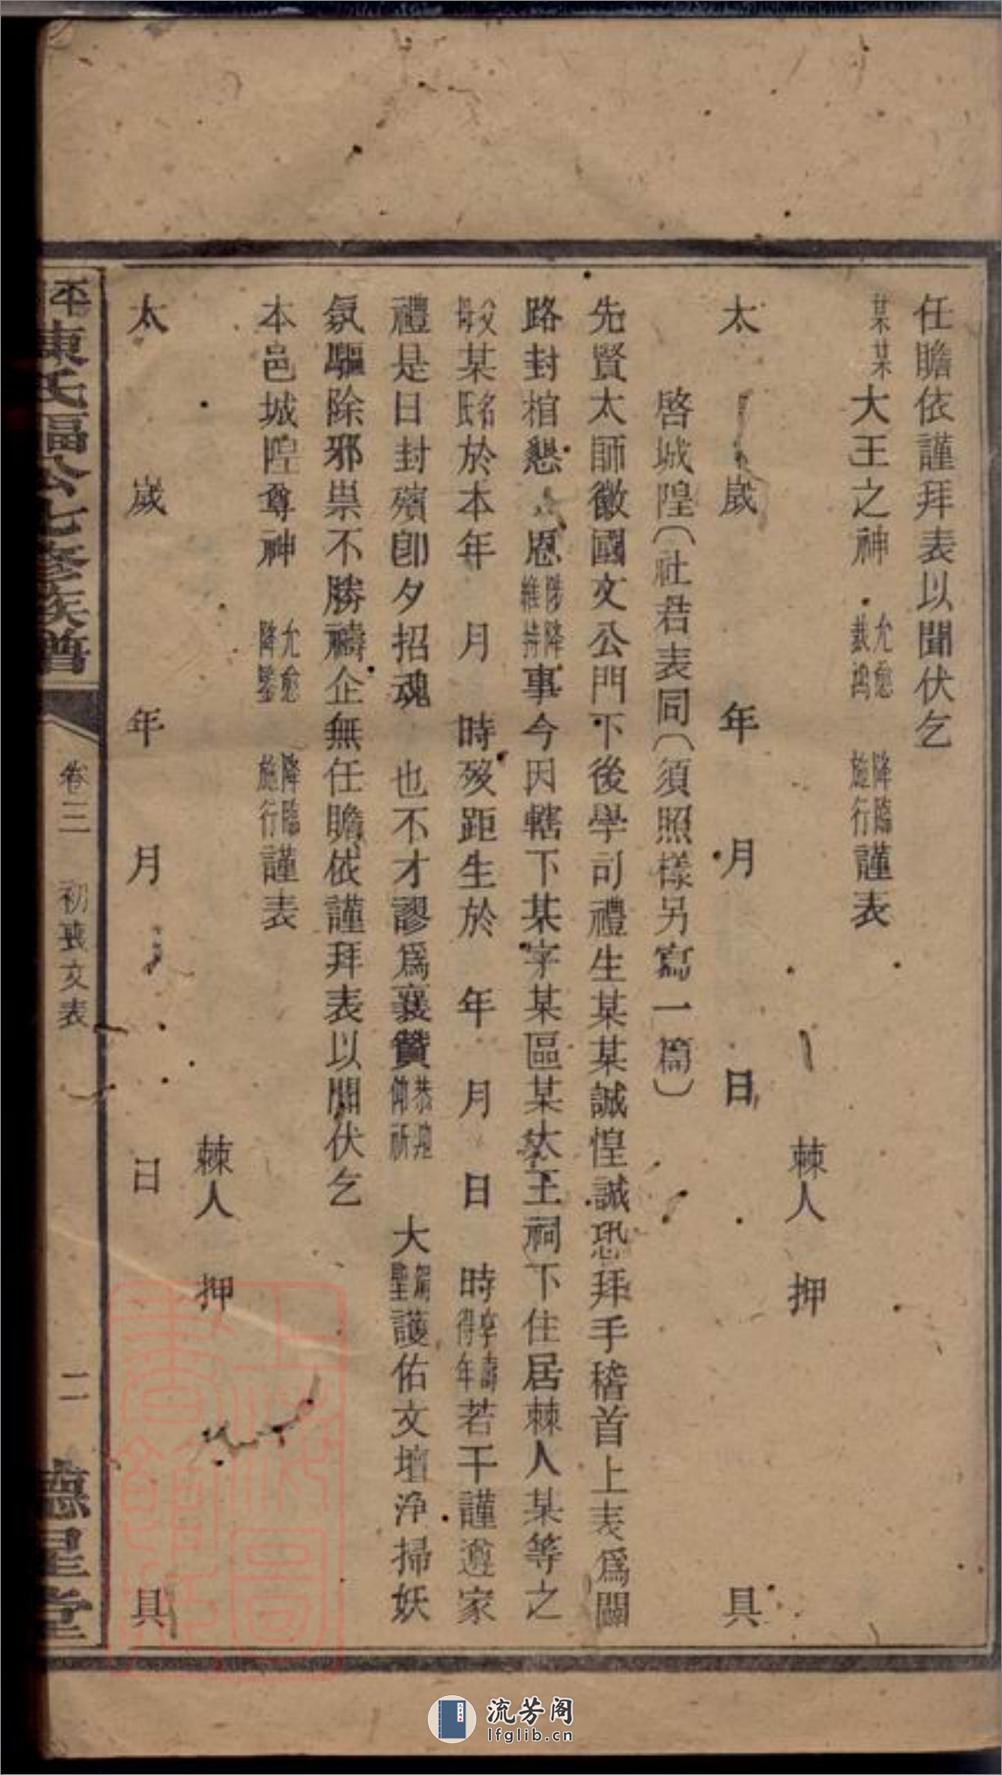 任瞻依謹拜表以聞伏乞
某某大王之神 允愈 裁鴻 降臨 施行 謹表
棘人 押
太 歲 年 月 日 具
啓城隍（社君表同（須照樣另寫一篇）
先賢太師徽國文公門下後學司禮生某某誠惶誠恐拜手稽首上表為闢
路封棺懇 恩 陟降 維持 事今因轄下某字某區某大王祠下住居棘人某等之
父 母 某 名 氏 於本年 月 時歿距生於 年 月 日 時 享壽 得年 若干謹遵家
禮是日封殯卽夕招魂 也不才謬爲襄贊 恭迎 仰祈 大 駕 聖 護佑文壇淨掃妖
氛驅除邪祟不勝禱企無任瞻依謹拜表以聞伏乞
本邑城隍尊神 允愈 降鑒 降臨 施行 謹表
棘人 押
太 歲 年 月 日 具
平 陳氏福公七修族譜 卷三 初喪文表 二 德星堂
流芳阁
lfglib.cn